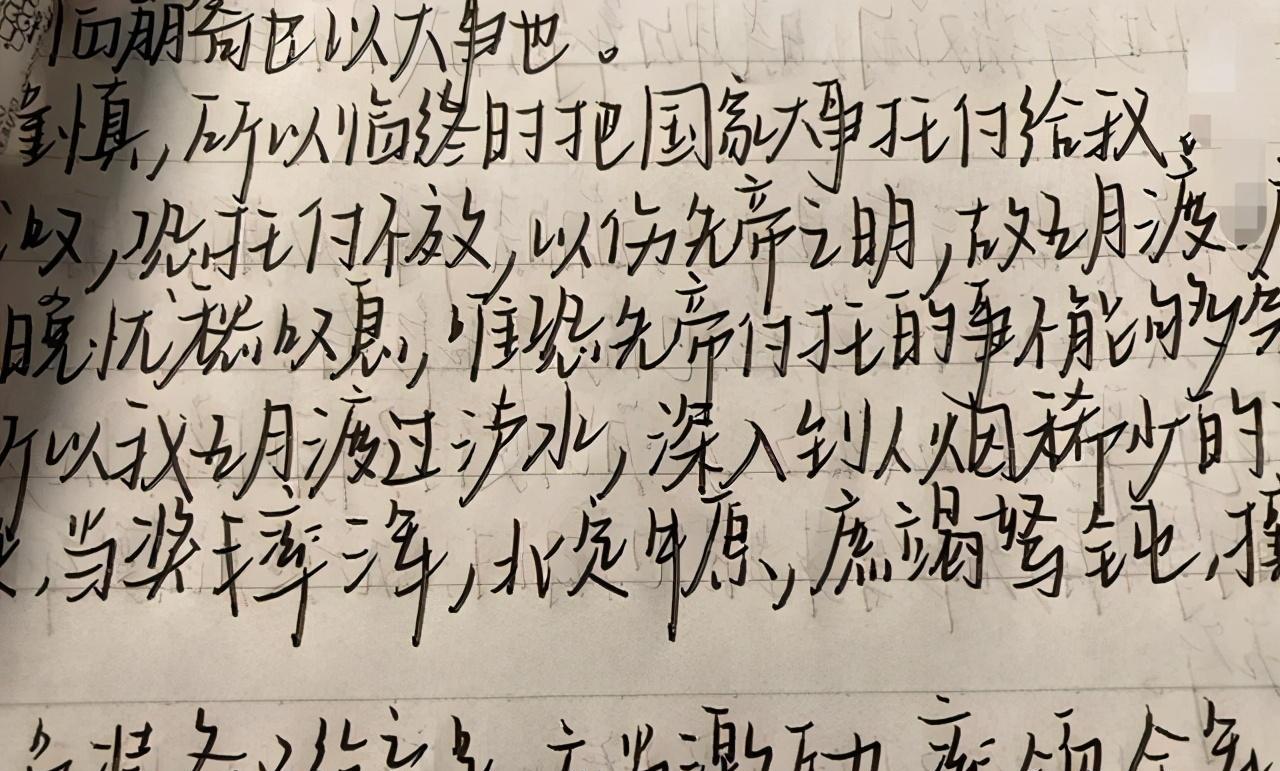 临崩寄臣以大事也。
谨慎,所以临终时把国家大事托付给我。
叹,恐托付不效,以伤先帝之明,故五月渡
晚忧愁叹息,唯恐先帝付托的事不能够
所以我五月渡过泸水,深入到人烟稀少的
足,当奖率三军,北定中原,庶竭驽钝,攘
装备 应当激励 率领全军